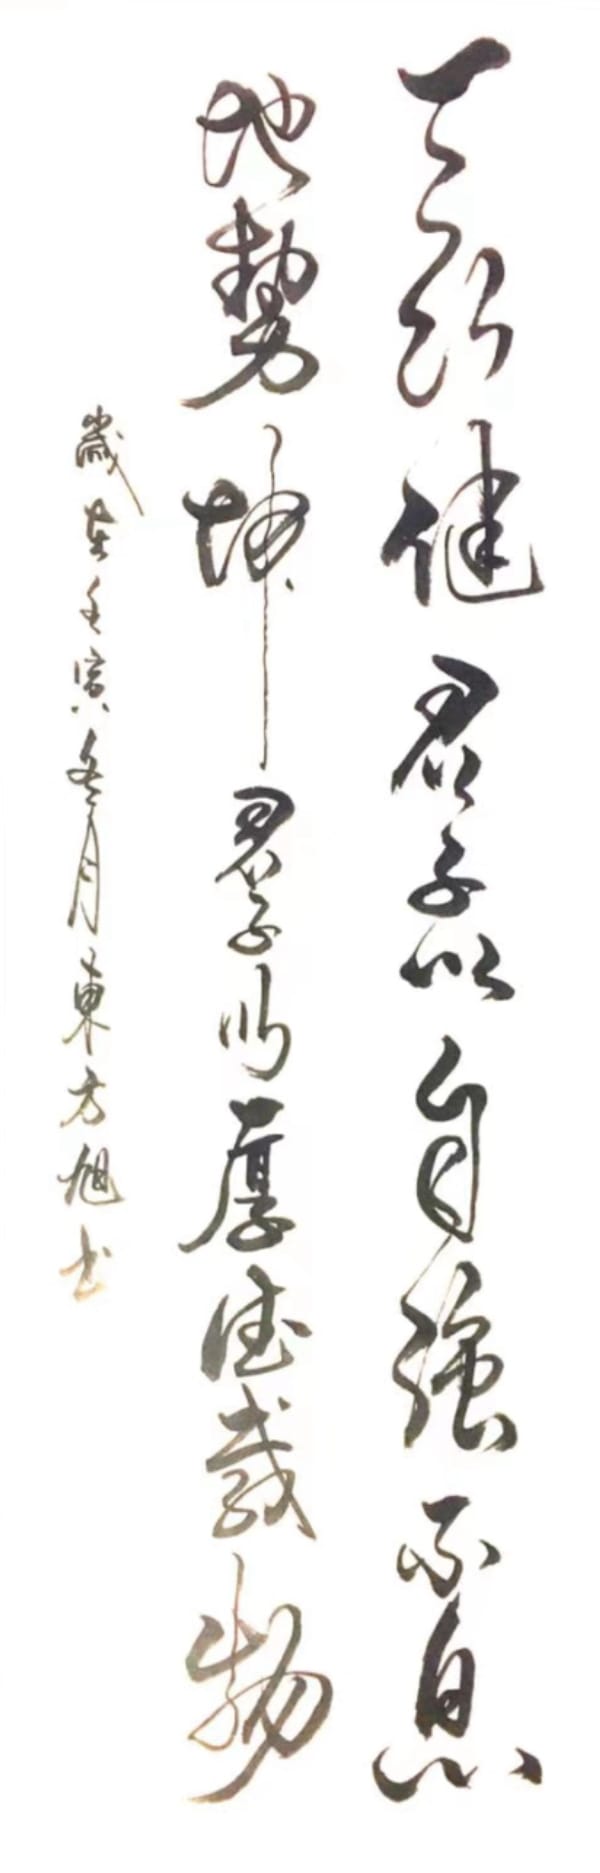 天行健君子以自强不息
地勢坤君子以厚德載物
歲在壬寅冬月東方旭书